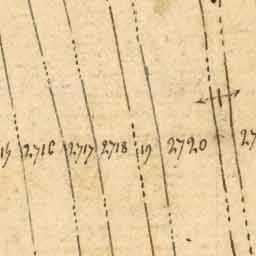 15 2716 2717 2718 19 2720 27